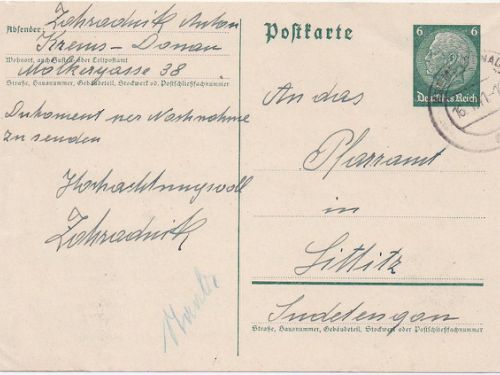 Absender:
Zahradnik Anton
Krems-Donau
Wohnort, auch Zustell- oder Leitpostamt
Molkergasse 38
Straße, Hausnummer, Gebäudeteil, Stockwerk od. Postschließfachnummer
Dokument per Nachnahme
zu senden
Hochachtungsvoll
Zahradnik
Postkarte
6 6
Deutsches Reich
An das
Pfarramt
in
Littitz
Sudetengau
Straße, Hausnummer, Gebäudeteil, Stockwerk oder Postschließfachnummer